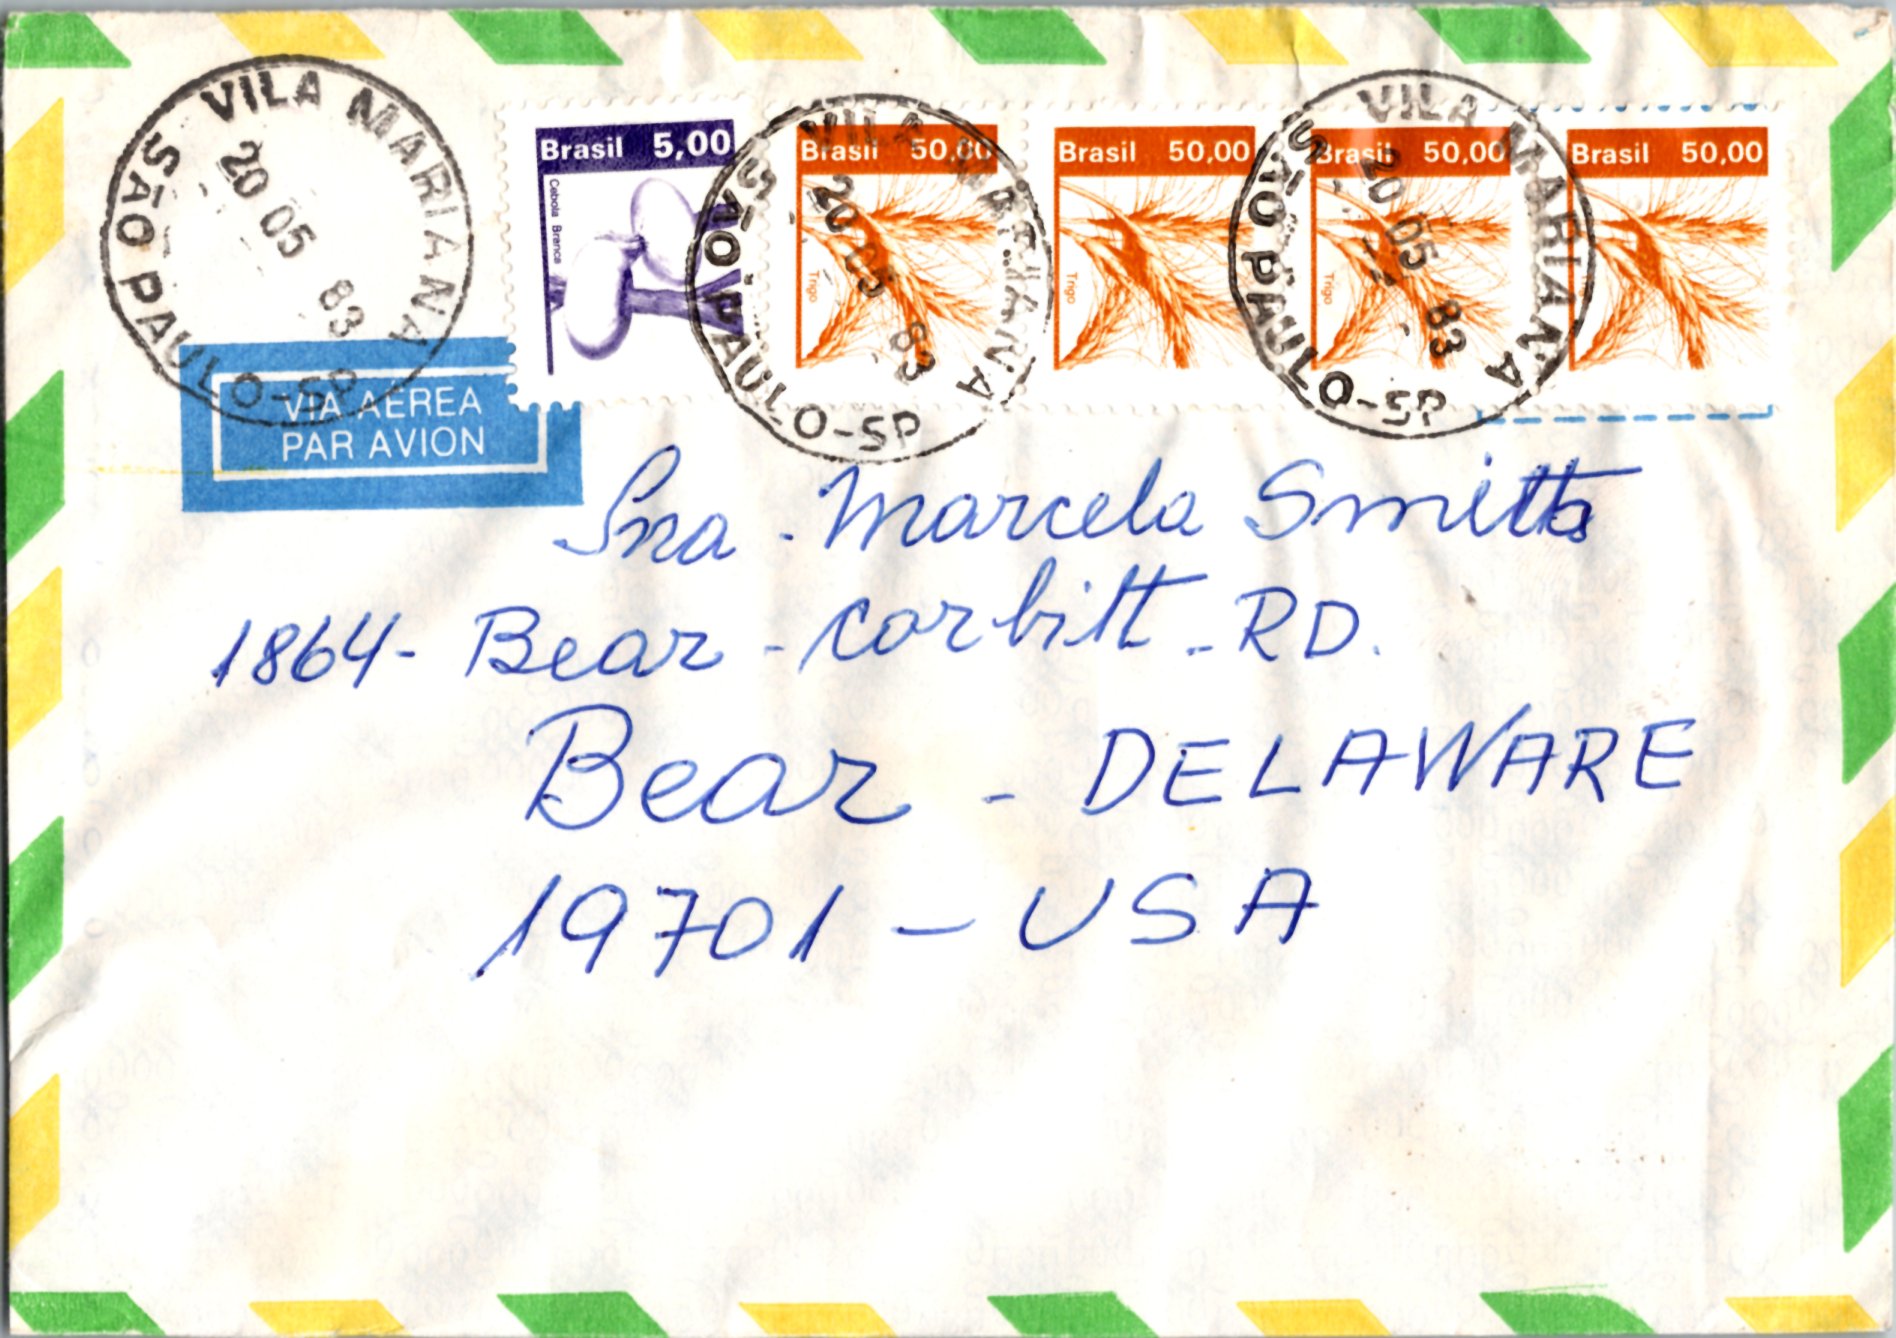 VILA MARIANA
20 05 83
SÃO PAULO-SP
Brasil 5,00
Cebola Branca
VILA MARIANA
20 05 83
SÃO PAULO-SP
Brasil 50,00
Trigo
Brasil 50,00
Trigo
VILA MARIANA
20 05 83
SÃO PAULO-SP
Brasil 50,00
Trigo
Brasil 50,00
VIA AÉREA
PAR AVION
Sra. Marcela Smith
1864- Bear - Corbitt - RD.
Bear - DELAWARE
19701 - USA